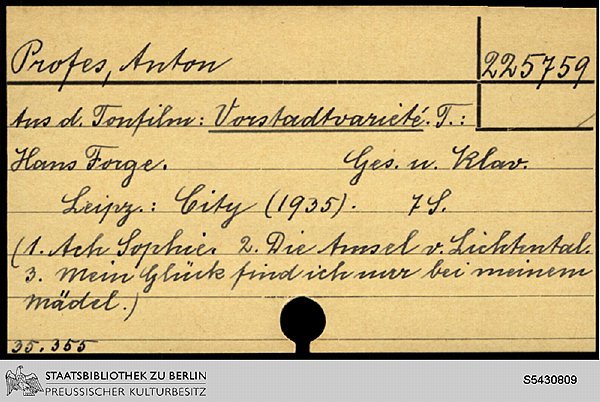 Profes, Anton
225759
Aus d. Tonfilm: Vorstadtvarieté. T.:
Hans Forge. Ges. u. Klav.
Leipz.: City (1935). 7 S.
(1. Ach Sophie. 2. Die Amsel v. Lichtental.
3. Mein Glück find ich nur bei meinem
Mädel.)
35.355
STAATSBIBLIOTHEK ZU BERLIN
PREUSSISCHER KULTURBESITZ
S5430809